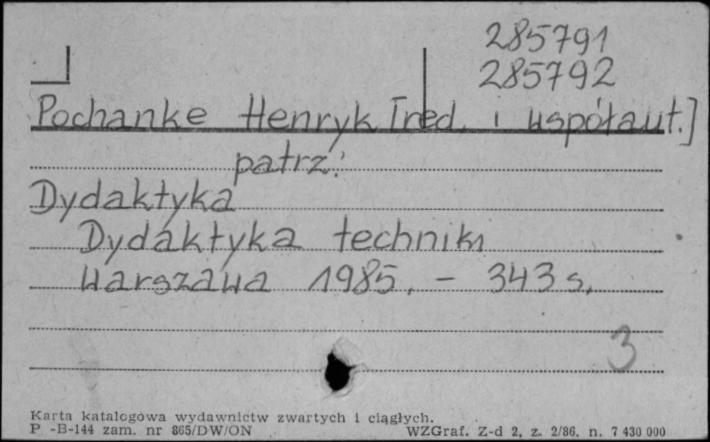 285791
285792
Pochanke Henryk [red. i współaut.]
patrz:
Dydaktyka
Dydaktyka techniki
Warszawa 1985. - 343 s.
3
Karta katalogowa wydawnictw zwartych i ciągłych.
P -B-144 zam. nr 865/DW/ON WZGraf. Z-d 2, z. 2/86, n. 7 430 000